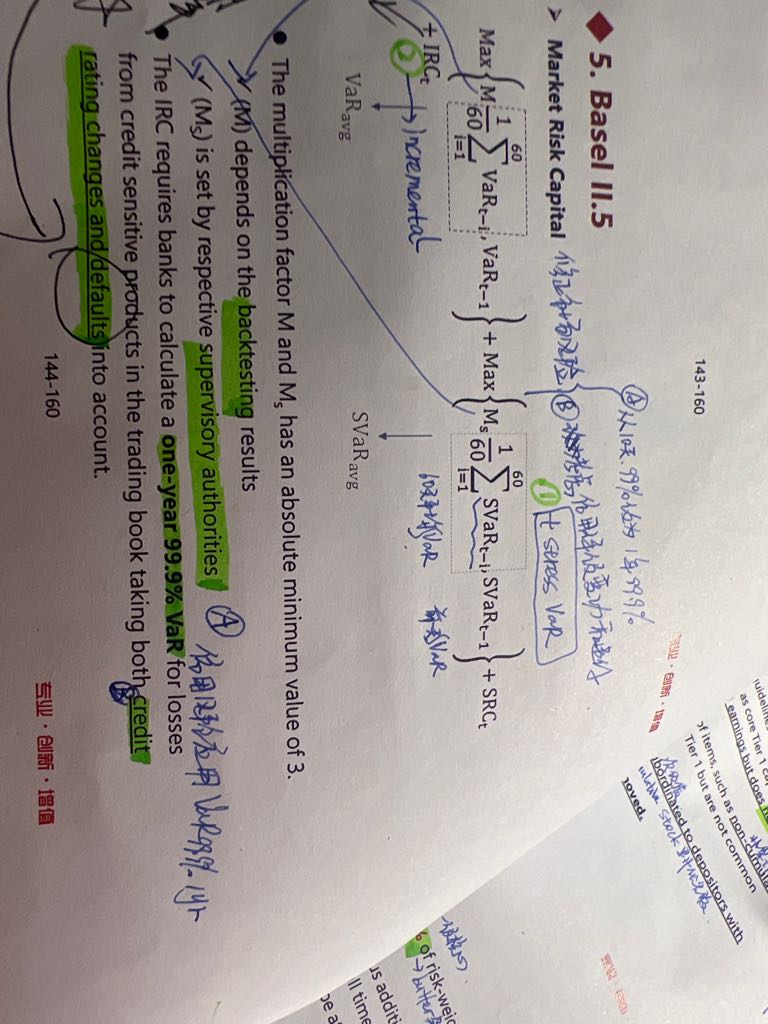 143-160
◆ 5. Basel II.5
➢ Market Risk Capital
Ⓐ 从10天.99%改为 1年99.9%
Ⓑ
① + stress VaR
Max { M 1/60 ∑ i=1 60 VaRt−i, VaRt−1 } + Max { Ms 1/60 ∑ i=1 60 SVaRt−i, SVaRt−1 } + SRCt
+ IRCt
② → incremental
VaRavg
SVaRavg
60天平均VaR
VaR
• The multiplication factor M and Ms has an absolute minimum value of 3.
✓ (M) depends on the backtesting results
✓ (Ms) is set by respective supervisory authorities
Ⓐ VaR 99.9% 1yr
• The IRC requires banks to calculate a one-year 99.9% VaR for losses
from credit sensitive products in the trading book taking both credit
rating changes and defaults into account.
144-160
专业·创新·增值
专业·创新·增值
uideline
as core Tier 1
earnings but does
of items, such as non-cumula
Tier 1 but are not common
bordinated to depositors with
stock
oved.
专业·创新
% of risk-weig
→ buffer
us additi
ll time
be a